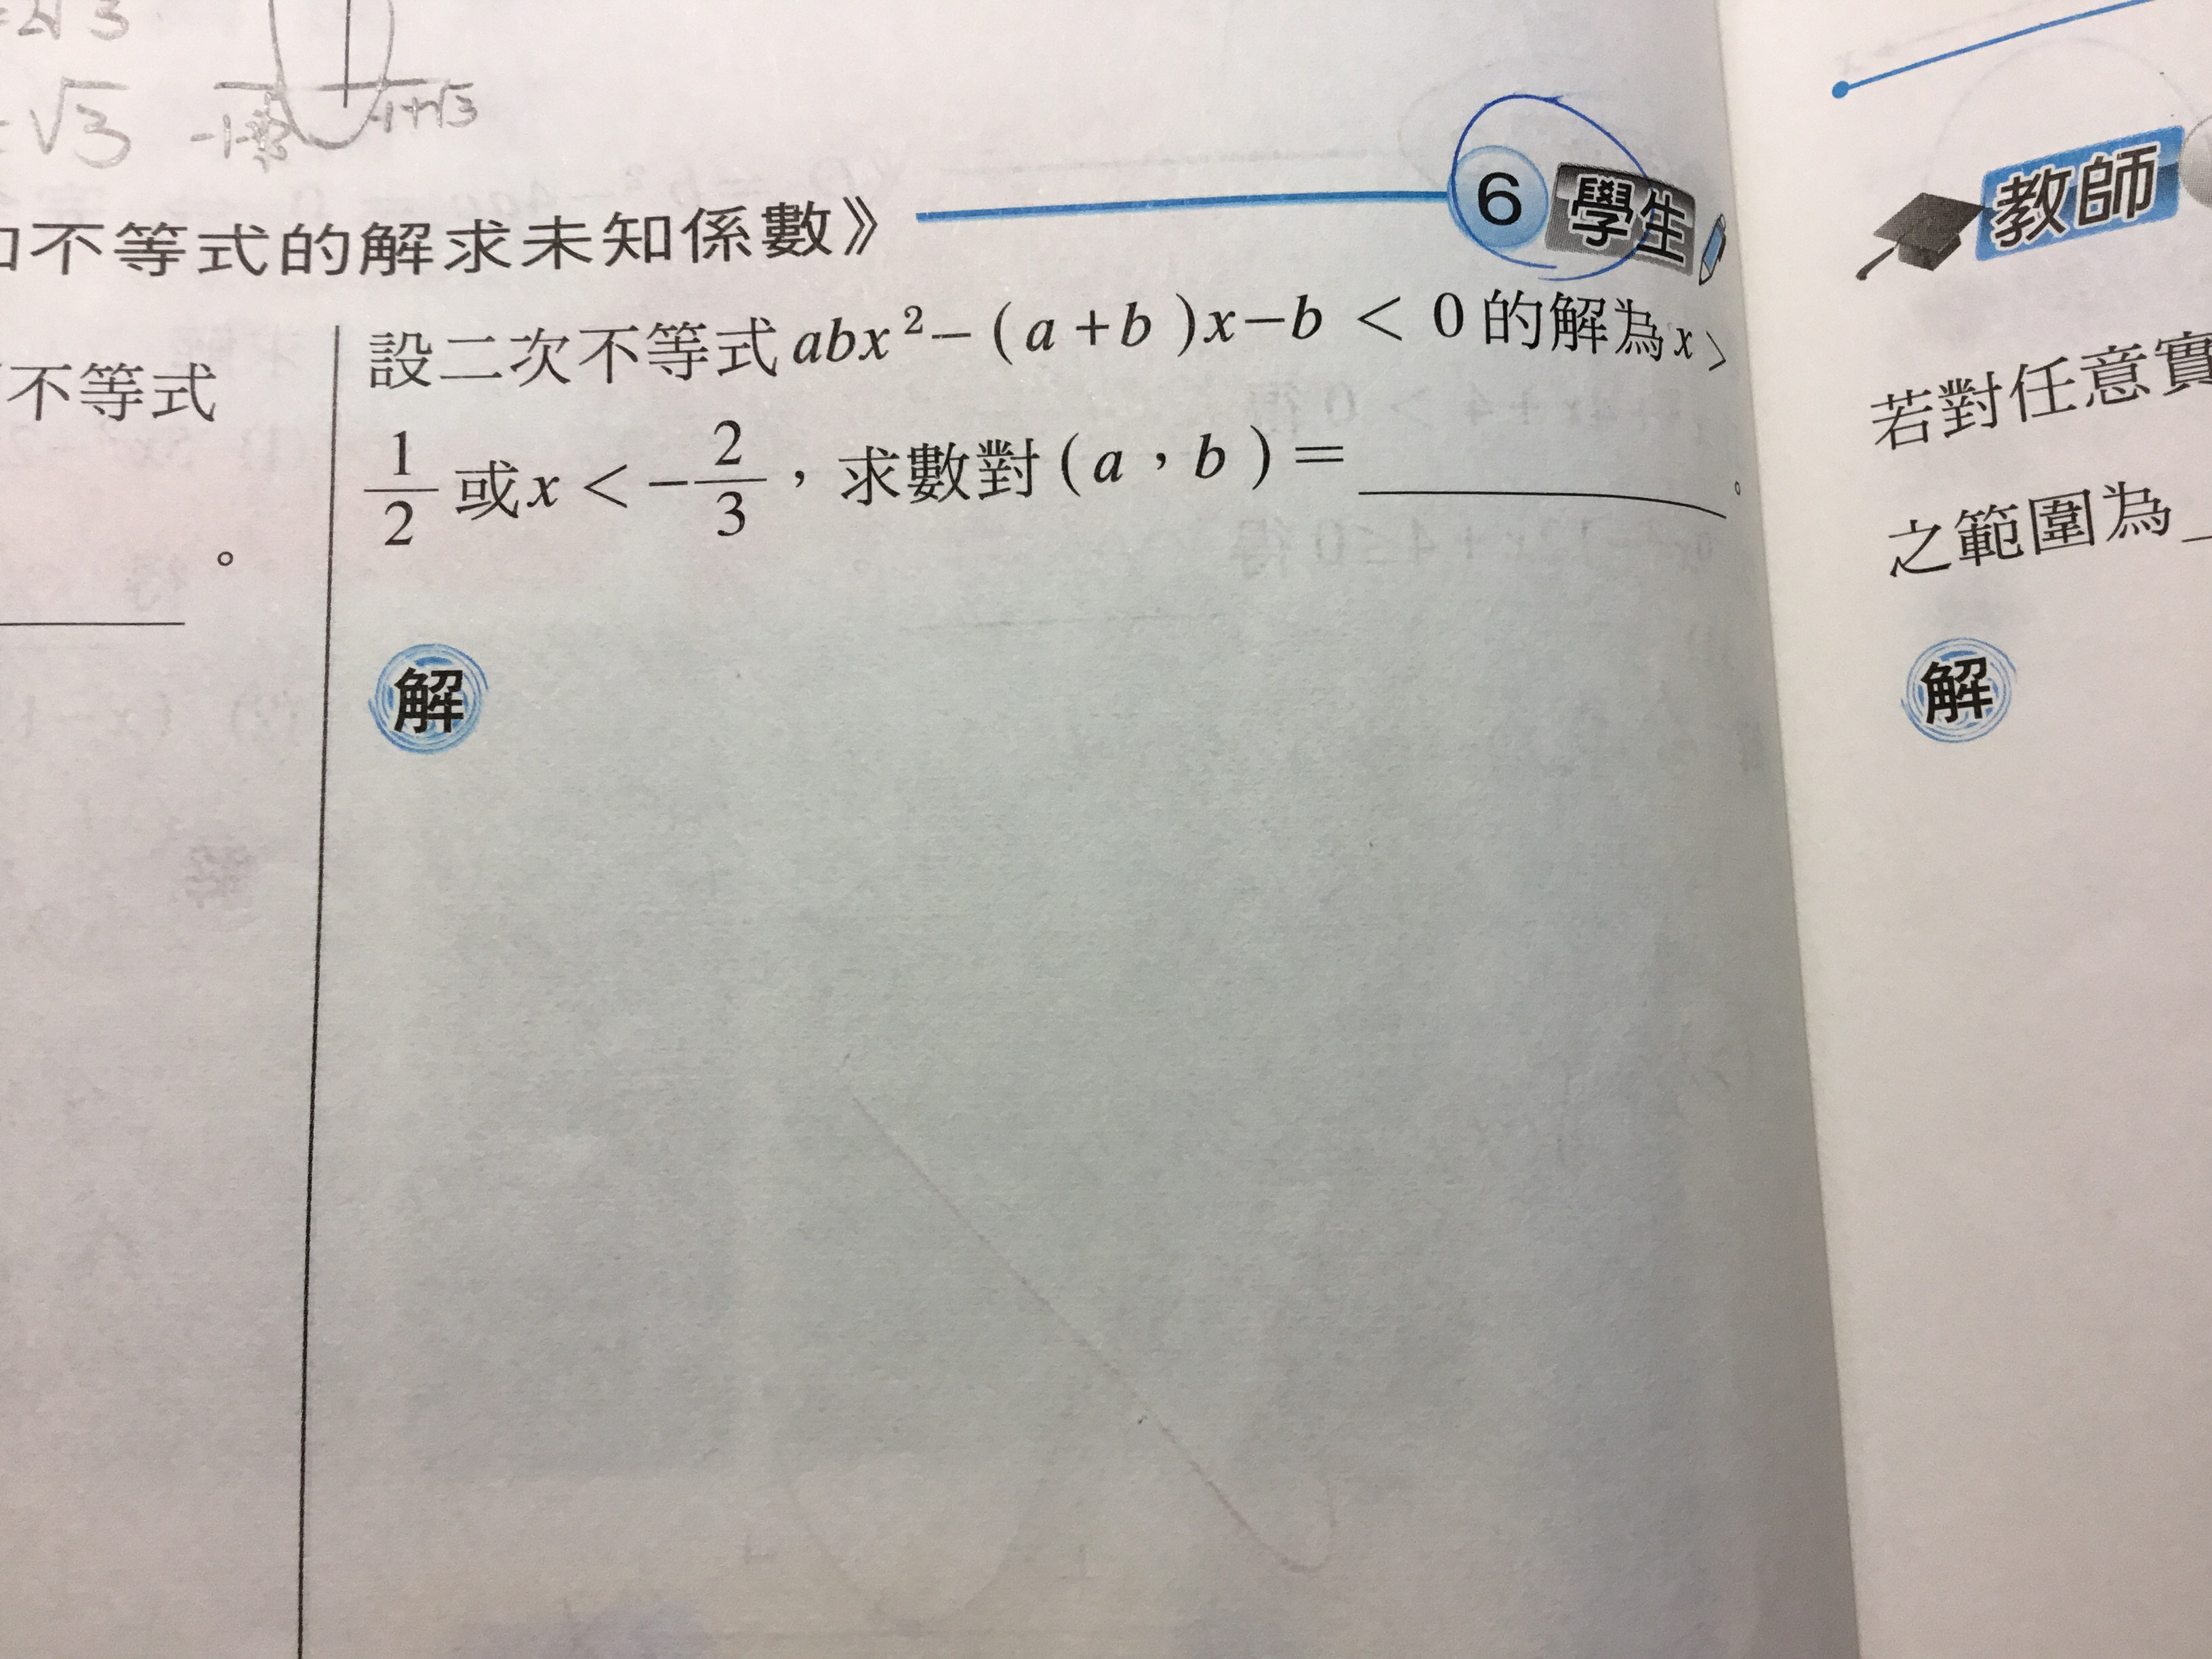 √3
-1+√3
不等式的解求未知係數》
6 學生
教師
不等式
。
設二次不等式abx²-(a+b)x-b < 0 的解為x>
1/2 或x<-2/3,求數對(a,b)=________。
解
若對任意實
之範圍為
解